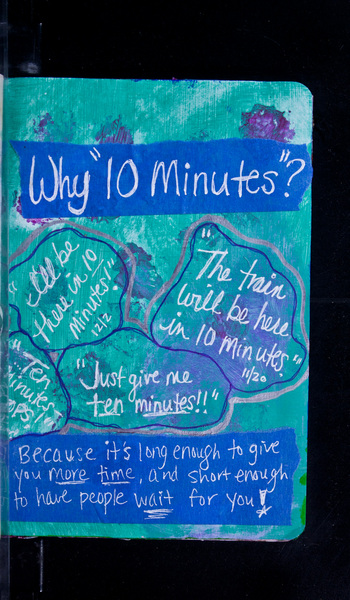 Why "10 Minutes"?
I'll be
there in 10
minutes!"
12/2
"The train
will be here
in 10 minutes"
11/20
"Ten
minutes
"Just give me
ten minutes!!"
Because it's long enough to give
you more time, and short enough
to have people wait for you!